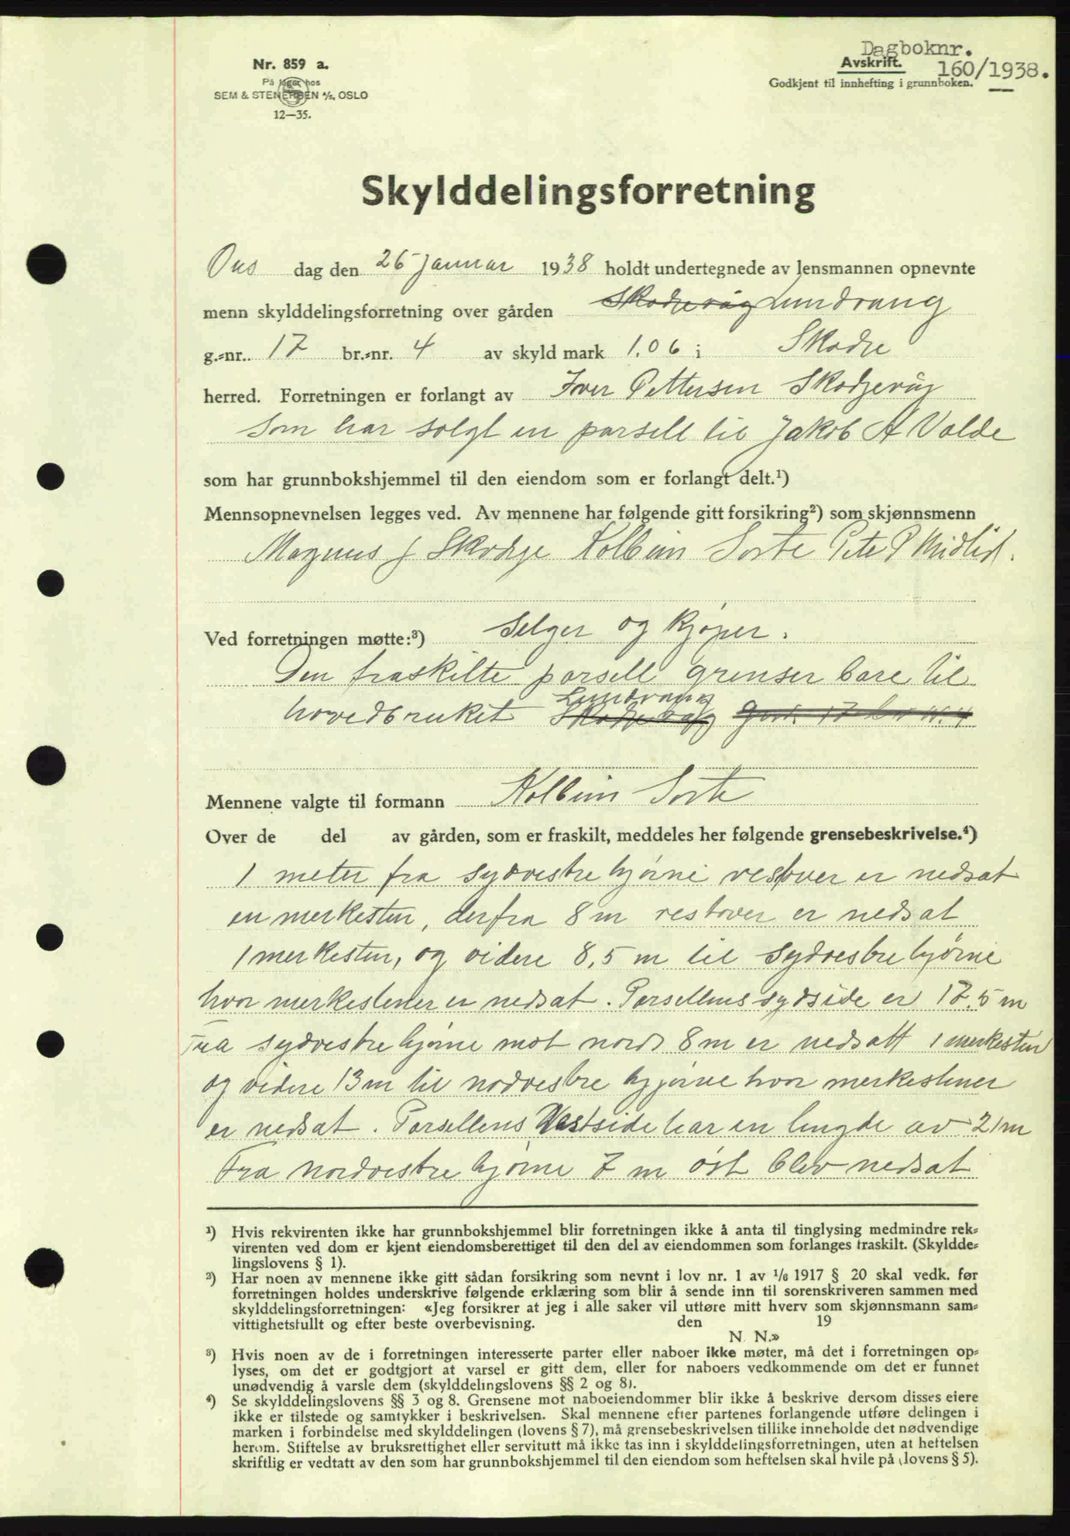 Dagboknr.
Nr. 859 a.
Avskrift. 160/1938.
På lager hos
Godkjent til innhefting i grunnboken.
SEM & STENERSEN A/S, OSLO
12—35.
Skylddelingsforretning
Ons dag den 26 januar 1938 holdt undertegnede av lensmannen opnevnte
menn skylddelingsforretning over gården Skodjevåg Lundvang
g.-nr.. 17 br.-nr. 4 av skyld mark 1.06 i Skodje
herred. Forretningen er forlangt av Iver Pettersen Skodjevåg
som har solgt en parsell til Jakob A Valde
som har grunnbokshjemmel til den eiendom som er forlangt delt.¹)
Mennsopnevnelsen legges ved. Av mennene har følgende gitt forsikring²) som skjønnsmenn
Magnus J Skodje Kolbein Sorte Peter P Midlid.
Ved forretningen møtte:³) Selger og kjøper.
Den fraskilte parsell grenser bare til
Lundvang
hovedbruket Skodjevåg gnr. 17 br n. 4
Mennene valgte til formann Kolbein Sorte
Over de del av gården, som er fraskilt, meddeles her følgende grensebeskrivelse.⁴)
1 meter fra sydvestre hjørne vestover er nedsat
en merkesten, derfra 8 m vestover er nedsat
1 merkesten, og videre 8,5 m til sydvestre hjørne
hvor merkestener er nedsat. Parsellens sydside er 17.5 m
Fra sydvestre hjørne mot nord 8 m er nedsatt 1 merkesten
og videre 13 m til nodvestre hjørne hvor merkestener
er nedsat. Parsellens Vestside har en lengde av 21 m
Fra nordvestre hjørne 7 m øst blev nedsat
¹) Hvis rekvirenten ikke har grunnbokshjemmel blir forretningen ikke å anta til tinglysing medmindre rek-
virenten ved dom er kjent eiendomsberettiget til den del av eiendommen som forlanges fraskilt. (Skyldde-
lingslovens § 1).
²) Har noen av mennene ikke gitt sådan forsikring som nevnt i lov nr. 1 av 1/6 1917 § 20 skal vedk. før
forretningen holdes underskrive følgende erklæring som blir å sende inn til sorenskriveren sammen med
skylddelingsforretningen: «Jeg forsikrer at jeg i alle saker vil utføre mitt hverv som skjønnsmann sam-
vittighetsfullt og efter beste overbevisning. den 19
N. N.»
³) Hvis noen av de i forretningen interesserte parter eller naboer ikke møter, må det i forretningen op-
lyses, om det er godtgjort at varsel er gitt dem, eller for naboers vedkommende om det er funnet
unødvendig å varsle dem (skylddelingslovens §§ 2 og 8).
⁴) Se skylddelingslovens §§ 3 og 8. Grensene mot naboeiendommer blir ikke å beskrive dersom disses eiere
ikke er tilstede og samtykker i beskrivelsen. Skal mennene efter partenes forlangende utføre delingen i
marken i forbindelse med skylddelingen (lovens § 7), må grensebeskrivelsen tillike inneholde det nødvendige
herom. Stiftelse av bruksrettighet eller servitutt må ikke tas inn i skylddelingsforretningen, uten at heftelsen
skriftlig er vedtatt av den som har grunnbokshjemmel til den eiendom som heftelsen skal hvile på (lovens § 5).